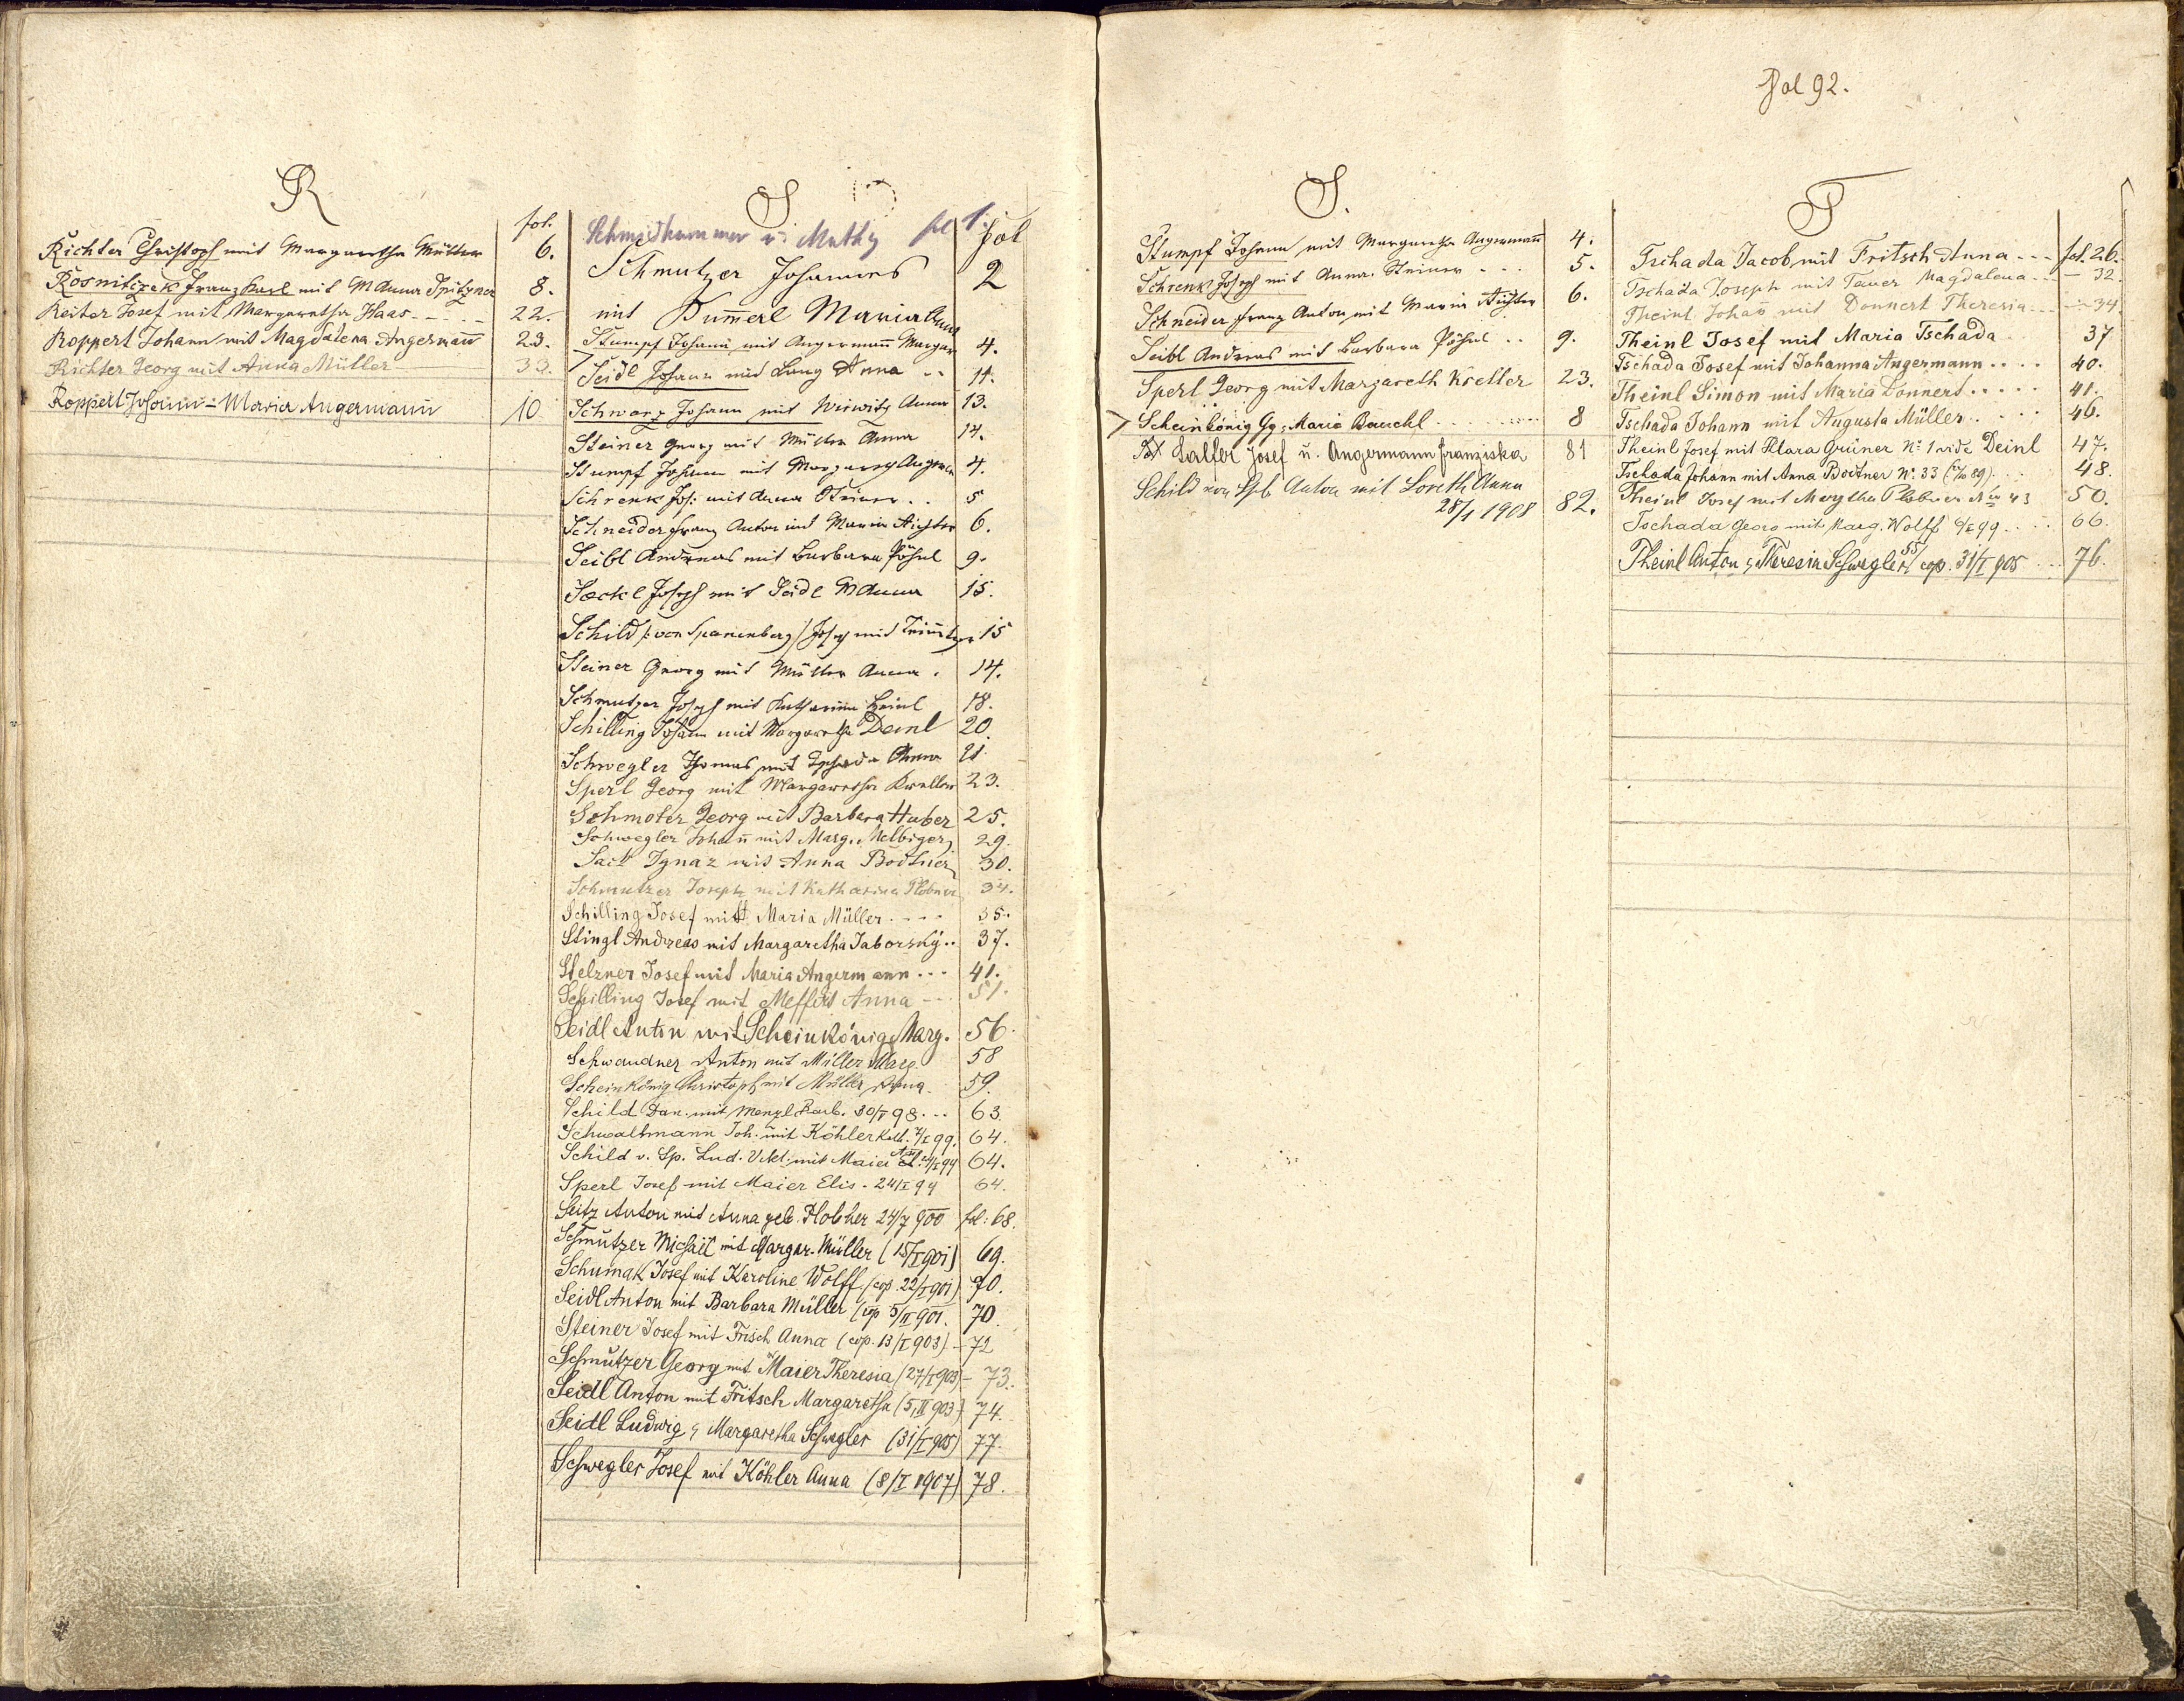 R
fol.
Richter Christoph mit Margaretha Müller 6.
Rosnitczek Franz Karl mit MAnna Spitzner 8.
Reiter Josef mit Margaretha Haas - - - - - 22.
Roppert Johann mit Magdalena Angermañ 23.
Richter Georg mit Anna Müller 33.
Roppert Johann - Maria Angermann 10
S
Schmidhammer u. Mathy fol 1.
fol
Schmutzer Johannes 2
mit Kum̄erl Maria Anna
Stumpf Johann mit Angermañ Margar 4.
Seidl Johann mit Lang Anna - - 11.
Schwarz Johann mit Wirwitz Anna 13.
Steiner Georg mit Müller Anna 14.
Stumpf Johann mit Margareth Angerm 4.
Schrenk Jos: mit Anna Steiner . . 5
Schneider Franz Anton mit Maria Richter 6.
Seibl Andreas mit Barbara Pöhnl 9.
Sackl Joseph mit Seidl MAnna 15.
Schild /: von Spanenberg / Joseph mit 15
Steiner Georg mit Müller Anna . 14.
Schmutzer Joseph mit Katharina Heinl 18.
Schilling Johann mit Margaretha Deinl 20.
Schwegler Thomas mit Tschada Anna 21.
Sperl Georg mit Margaretha Kreller 23.
Schmoter Georg mit Barbara Huber 25.
Schwegler Johañ mit Marg. Melbiger 29.
Sack Ignaz mit Anna Bodtner 30.
Schmutzer Joseph mit Katharina Plobner 34.
Schilling Josef mit Maria Müller . - - - 35.
Stingl Andreas mit Margaretha Jaborsky . . 37.
Stelzner Josef mit Maria Angermann . - - 41.
Schilling Josef mit Meffert Anna - - 51.
Seidl Anton mit Scheinkönig Marg. 56.
Schwandner Anton mit Müller Marg. 58
Scheinkönig Christoph mit Müller Anna 59.
Schild Dan. mit Menzl Barb. 30/I 98 . - - 63.
Schwaltmann Joh. mit Köhler Kath. 99. 64.
Schild v. Sp. Lud. Vikt. mit Maier 99 64.
Sperl Josef mit Maier Elis - 24/I 99 64.
Seitz Anton mit Anna geb. Plobner 24/7 900 fol: 68.
Schmutzer Michael mit Margar. Müller (15/I 901) 69.
Schumak Josef mit Karoline Wolff (cop. 22/I 901) 70.
Seidl Anton mit Barbara Müller (cop 5/II 901. 70.
Steiner Josef mit Frisch Anna (cop. 13/I 903) - 72
Schmutzer Georg mit Maier Theresia (27/I 903) - 73.
Seidl Anton mit Fritsch Margaretha (5/II 903) 74.
Seidl Ludwig, Margaretha Schwegler (31/I 905) 77.
Schwegler Josef mit Köhler Anna (8/I 1907) 78.
S.
Stumpf Johann mit Margaretha Angermañ 4.
Schrenk Joseph mit Anna Steiner - - . 5.
Schneider Franz Anton mit Maria Richter 6.
Seibl Andreas mit Barbara Pöhnl . . 9.
Sperl Georg mit Margareth Kreller 23.
Scheinkönig Gg. Maria Bauchl . . . . . . 8
Salfer Josef u. Angermann Franziska 81
Schild von Spb Anton mit Loreth Anna
28/1 1908 82.
Fol 92.
T
Tschada Jacob mit Fritsch Anna - - - fol. 26.
Tschada Joseph mit Tauer Magdalena - - - 32.
Theinl Johañ mit Donnert Theresia - - - 34.
Theinl Josef mit Maria Tschada 37
Tschada Josef mit Johanna Angermann . . . . 40.
Theinl Simon mit Maria Donnert . . . . . 41.
Tschada Johann mit Augusta Müller . . . . 46.
Theinl Josef mit Klara Grüner N: 1 vide Deinl 47.
Tschada Johann mit Anna Bodtner N: 33 . . 48.
Theinl Josef mit Martha Plobner 50.
Tschada Georg mit Marg. Wolff 99 . . . . 66.
Theinl Anton, Theresia Schwegler cop. 31/I 905 . . 76.